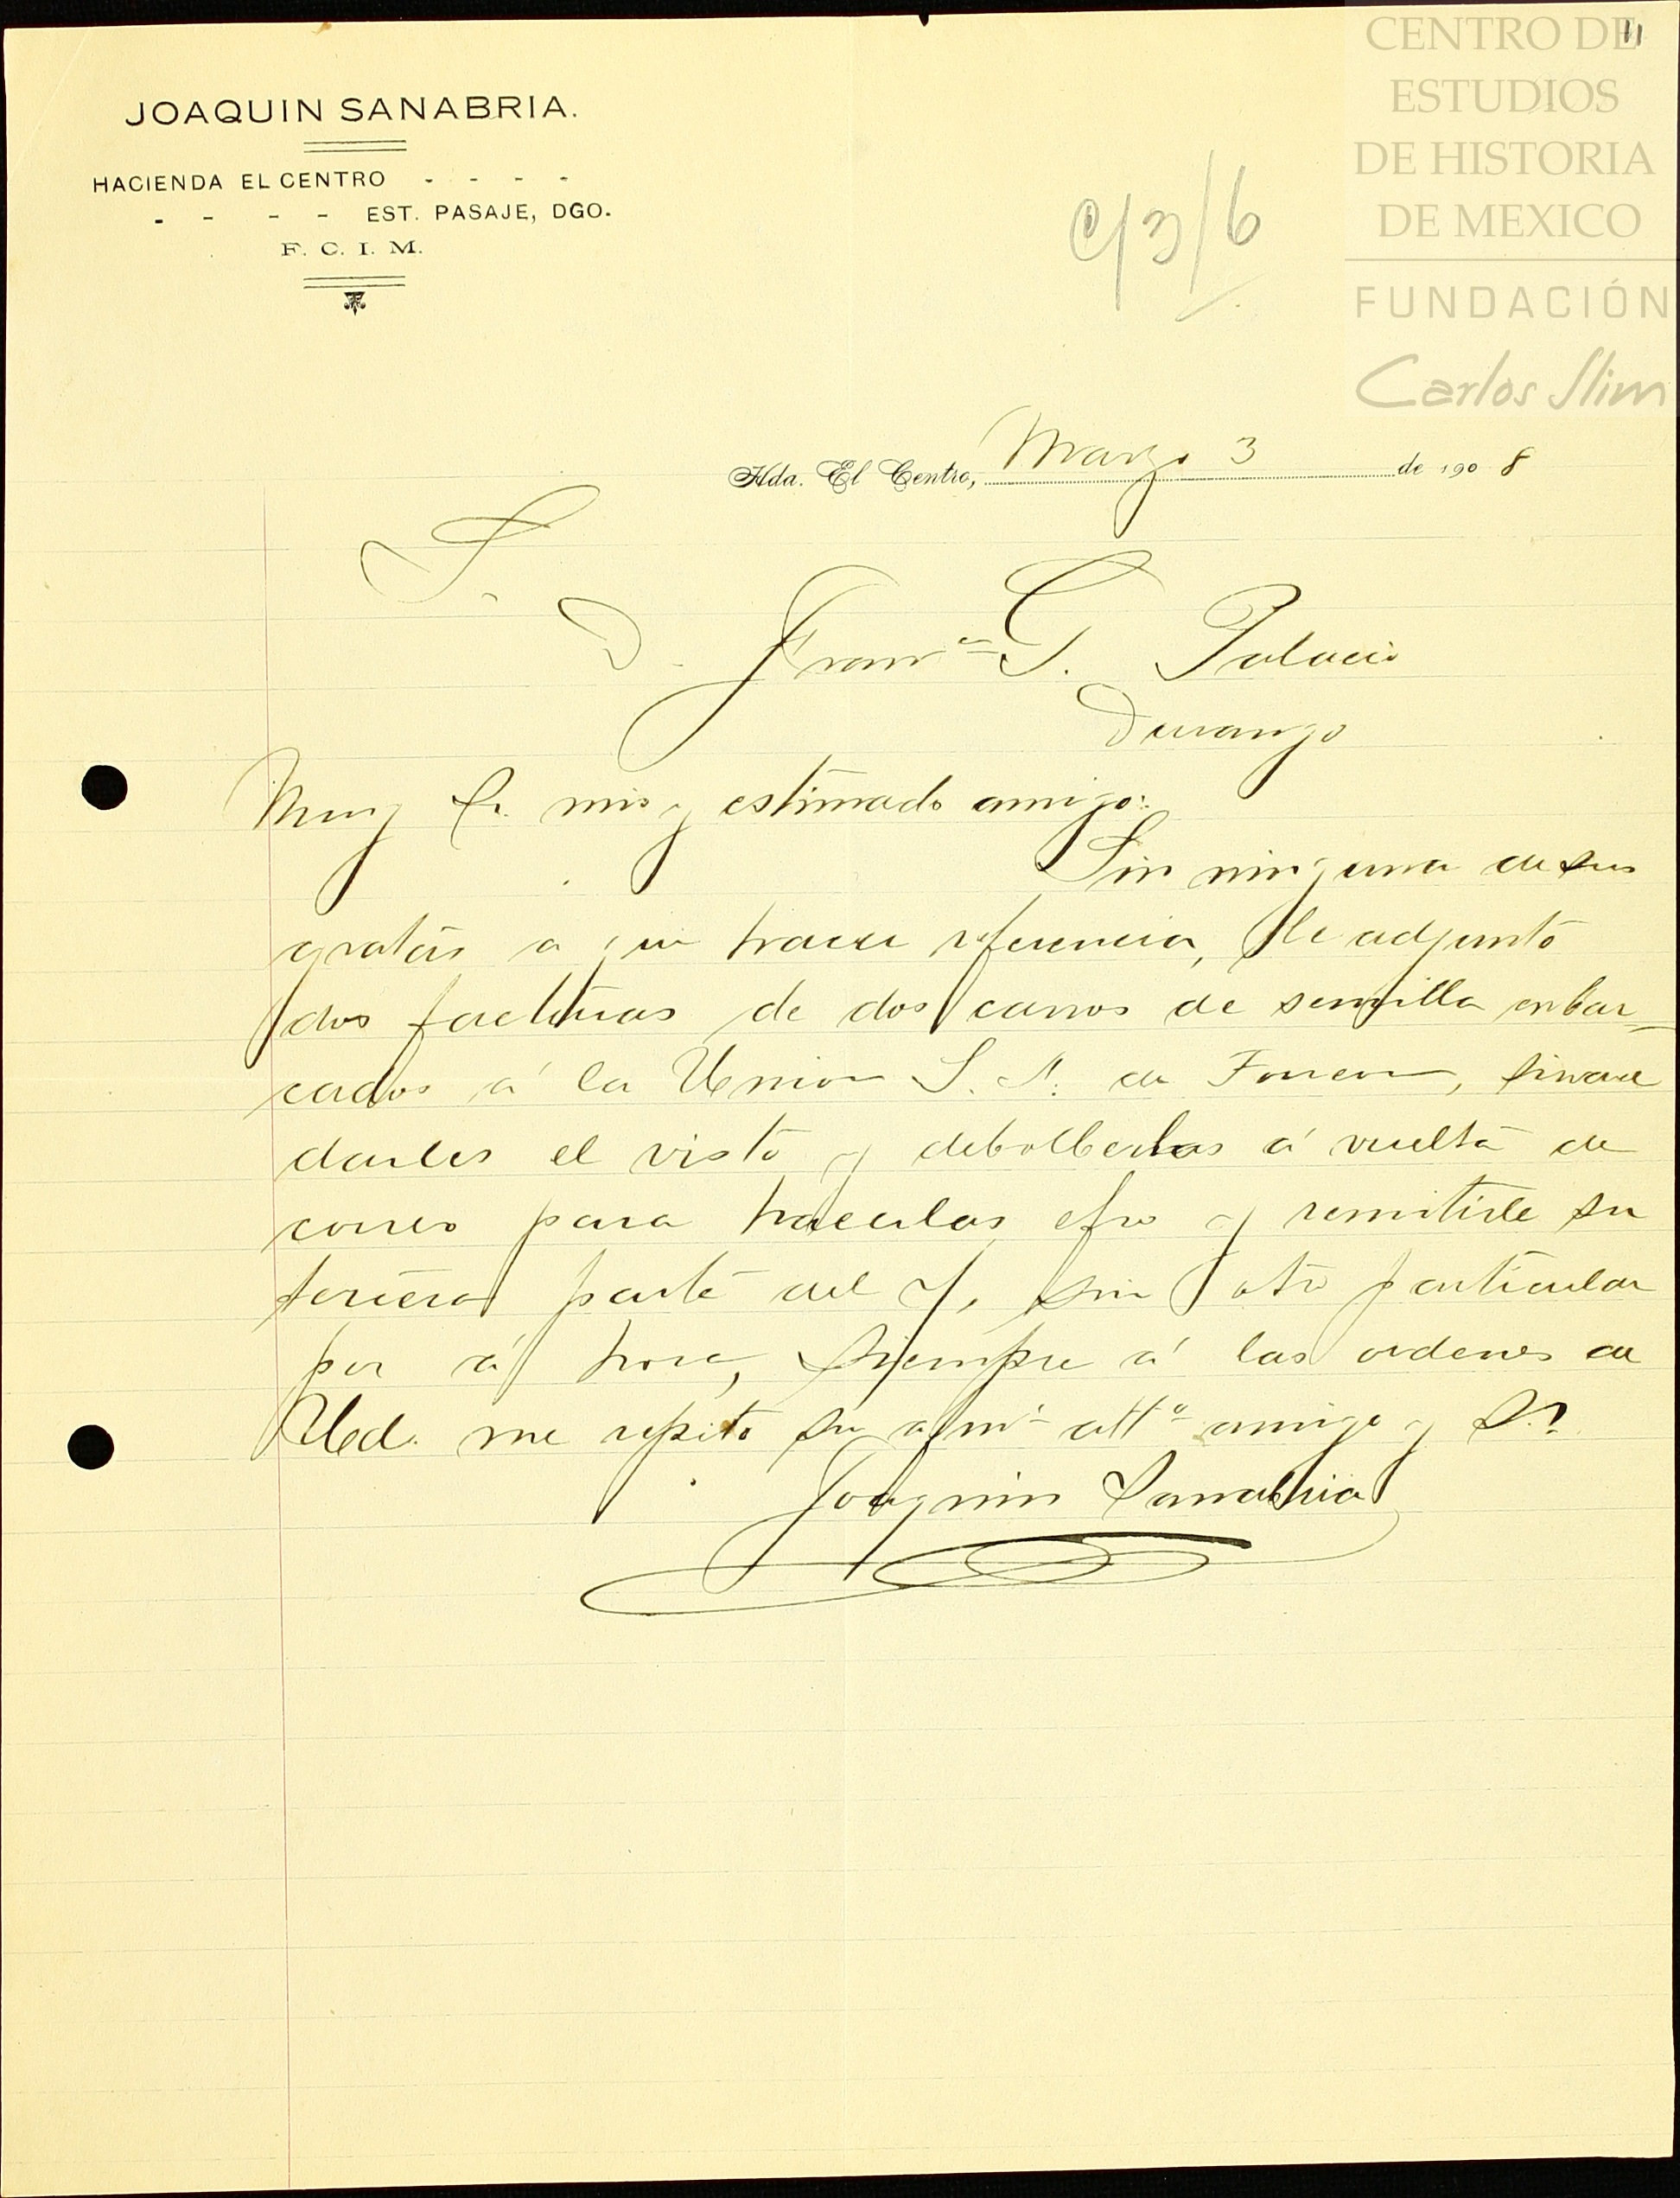 CENTRO DE
ESTUDIOS
DE HISTORIA
DE MEXICO
FUNDACIÓN
Carlos Slim
11
JOAQUIN SANABRIA.
HACIENDA EL CENTRO - - - -
- - - - EST. PASAJE, DGO.
F. C. I. M.
C/3/6
Hda. El Centro, Marzo 3 de 1908
S.
D. Franco G. Palacio
Durango
Muy Sr. mio y estimado amigo:
Sin ninguna de sus
gratas a que hacer referencia, le adjunto
dos facturas de dos carros de semilla enbar=
cados á la Union S. A. de Torreon, sirvase
darles el visto y debolberlas á vuelta de
correo para hacerlas efvo y remitirle su
tercera parte del, sin otro particular
por á hora, siempre á las ordenes de
Ud. me repito su afmo atto amigo y S.S.
Joaquin Sanabria